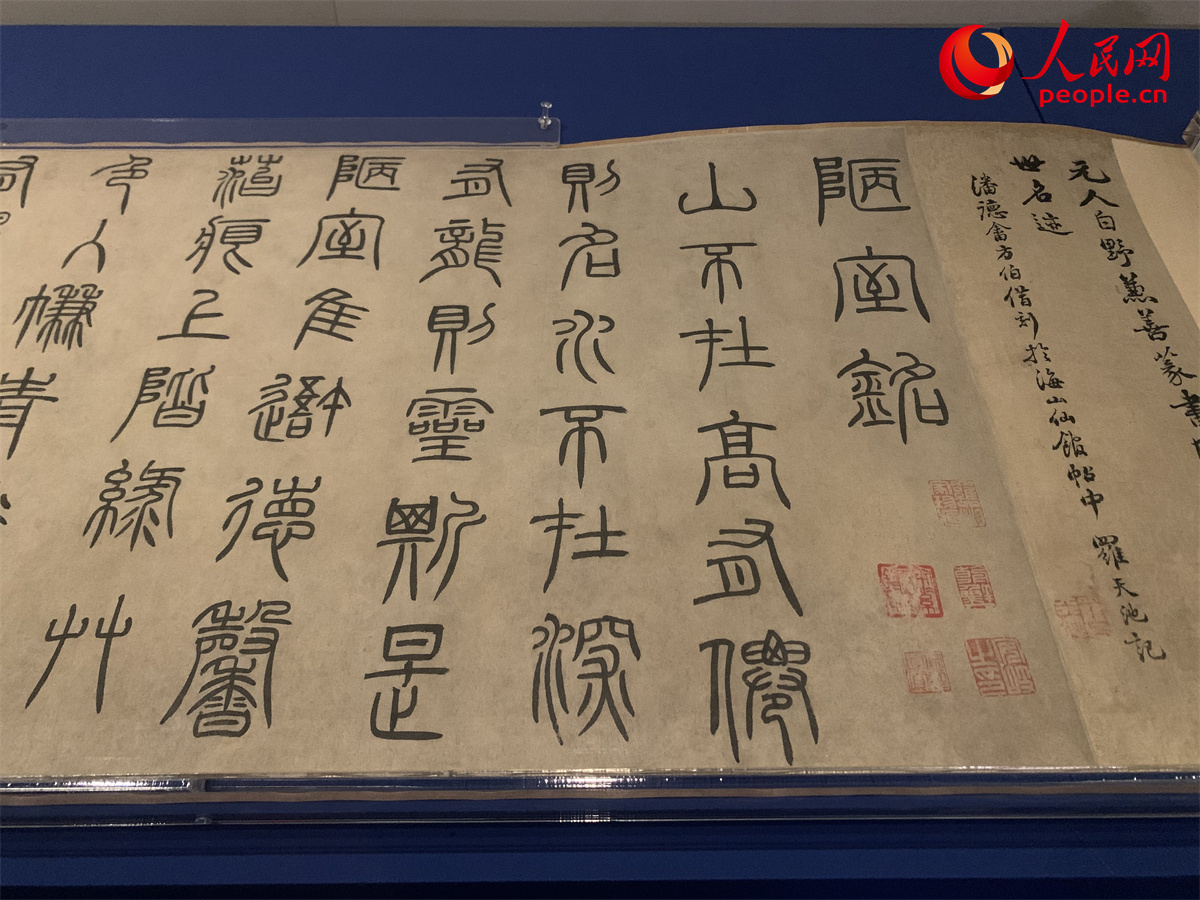 人民网
people.cn
元人白野篆善篆書
世名迹
潘德畬方伯借刻於海山仙館帖中 羅天池記
陋室銘
山不在高有僊
則名水不在深
有龍則靈斯是
陋室隹𨗿德馨
苔痕上階緑
艸
色入簾青